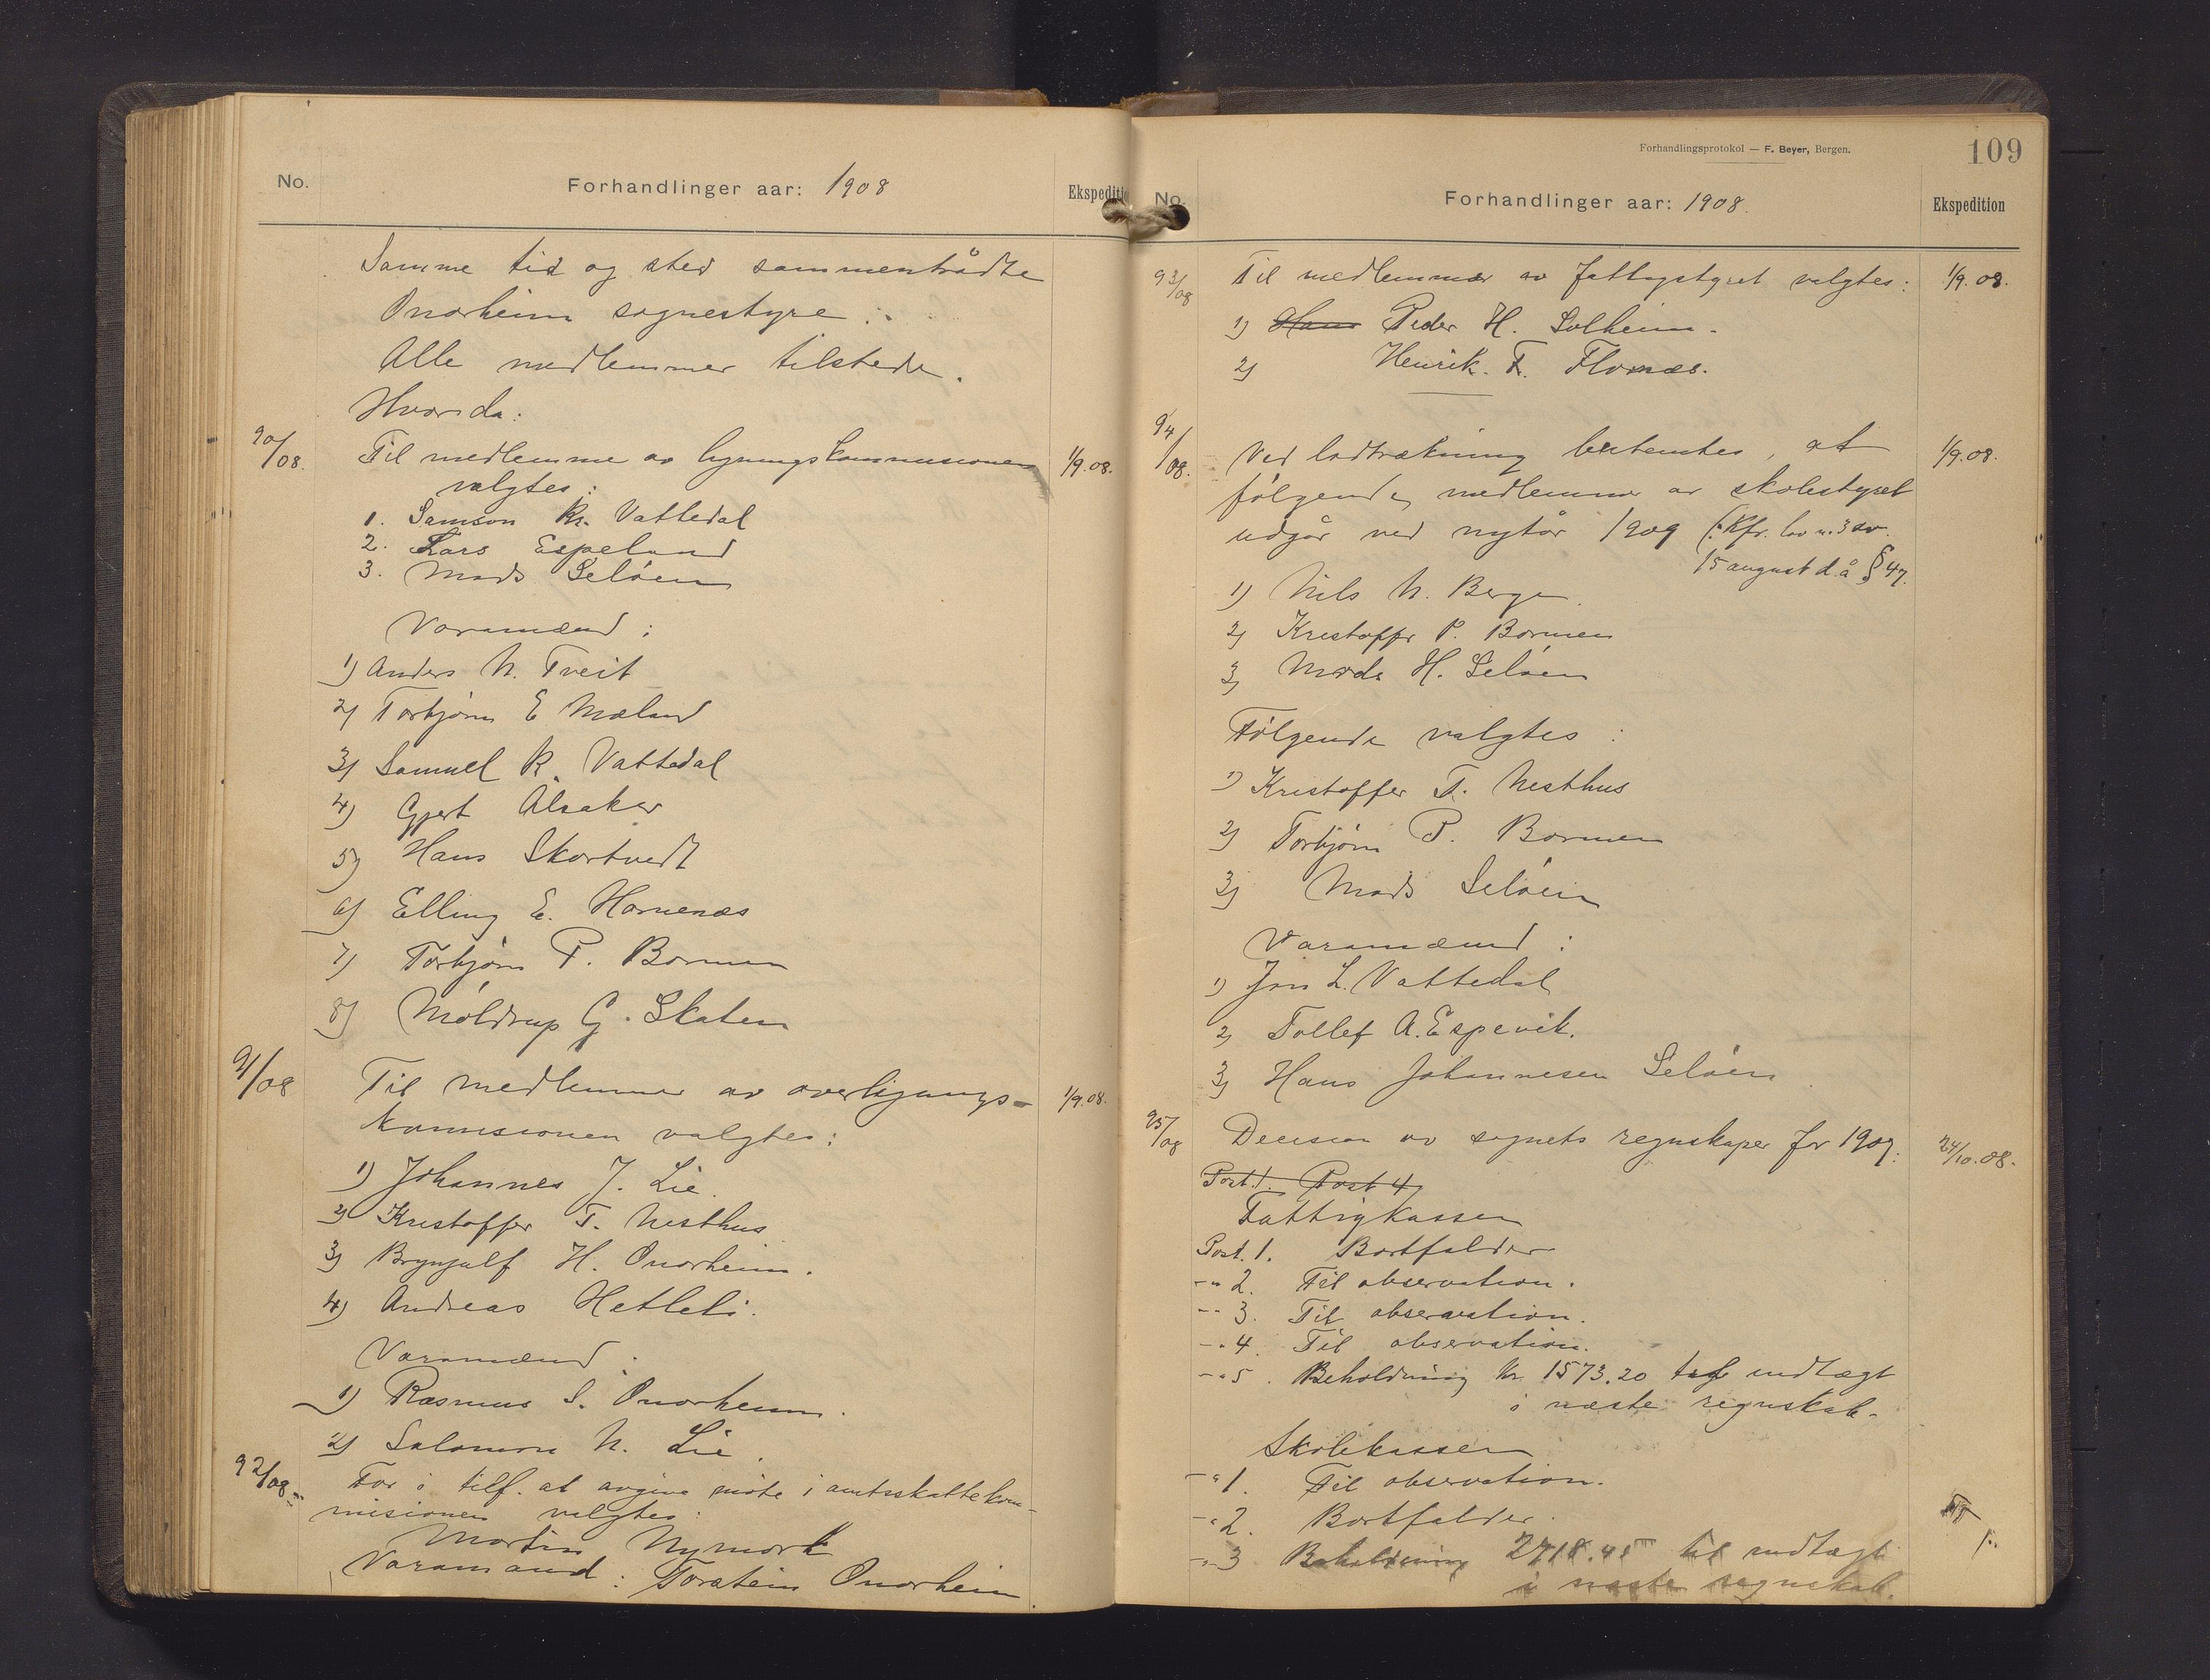 No.
Forhandlinger aar: 1908
Ekspeditio
Samme tid og sted sammentrådte
Onarheim sognestyre:
Alle medlemmer tilstede.
Hvorda:
90/08.
Til medlemme av ligningskommissionen
1/9.08.
valgtes:
1. Samson Kr. Vattedal
2. Lars Espeland
3. Mads Seløen
Varamænd:
1) Anders N. Tveit
2) Torbjørn E Mæland
3) Samuel K. Vattedal
4) Gjert Alsaker
5) Hans Skortvedt
6) Elling E. Hornenæs
7) Torbjørn P. Bormen
8) Møldrup G. Skaten
91/08
Til medlemmer av overligangs-
1/9.08.
kommisionen valgtes:
1) Johannes J. Lie.
2) Kristoffer T. Nesthus
3) Brynjulf H. Onarheim.
4) Andreas Hetleli.
Varamænd:
1) Rasmus S. Onarheim.
2) Salomon N. Lie.
92/08.
For i tilf. at avgive møte i amtsskattekom-
misionen valgtes:
Martin Nymark
Varamand: Torstein Onarheim
Forhandlingsprotokol — F. Beyer, Bergen.
109
No.
Forhandlinger aar: 1908.
Ekspedition
93/08
Til medlemmer av fattigstyret valgtes:
1/9.08.
1) Hans Peder H. Solheim.
2) Henrik. T. Flornæs.
94/08.
Ved lodtrækning bestemtes, at
1/9.08.
følgende medlemmer av skolestyret
udgår ved nytår 1909 (: Kfr. lov n. 3 av
15 august d. å § 47.
1) Nils N. Berge.
2) Kristoffer P. Bormen
3) Mads H. Seløen
Følgende valgtes:
1) Kristoffer T. Nesthus
2) Torbjørn P. Bormen
3) Mads Seløen
Varamænd:
1) Jon L. Vattedal
2) Tollef A. Espevik.
3) Hans Johannesen Seløen
95/08
Decision av sognets regnskaper for 1907:
24/10.08.
Post. 1. Post 4
Fattigkassen
Post. 1. Bortfalder
-"- 2. Til observation.
-"- 3. Til observation.
-"- 4. Til observation.
-"- 5. Beholdning kr. 1573.20 til indtægt
i næste regnskab.
Skolekassen
-"- 1. Til observation.
-"- 2. Bortfalder.
-"- 3 Beholdning 2718.45 til indtægt
i næste regnskab.